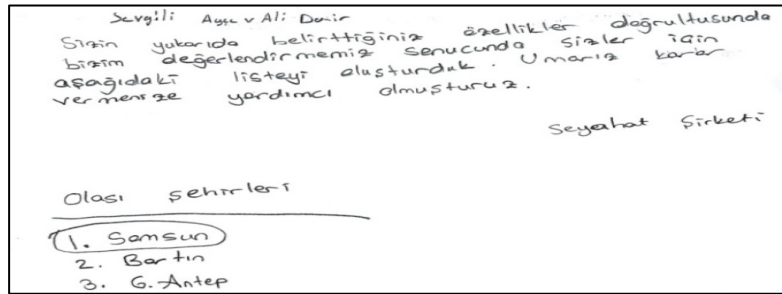 Sevgili Ayşe v Ali Demir
Sizin yukarıda belirttiğiniz özellikler doğrultusunda
bizim değerlendirmemiz sonucunda sizler için
aşağıdaki listeyi oluşturduk. Umarız karar
vermenize yardımcı olmuşturuz.
Seyahat Şirketi
Olası şehirleri
1. Samsun
2. Bartın
3. G.Antep